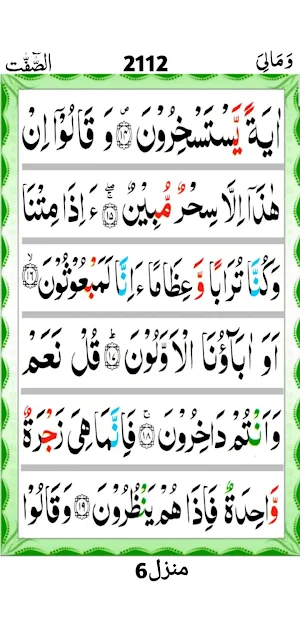 وَمَالِیَ 2112 الصّٰٓفّٰت
اٰیَةً یَّسْتَسْخِرُوْنَ ۪﴿۱۴﴾ وَ قَالُوْۤا اِنْ
هٰذَاۤ اِلَّا سِحْرٌ مُّبِیْنٌ ﴿۱۵﴾ۚۖ ءَ اِذَا مِتْنَا
وَ كُنَّا تُرَابًا وَّ عِظَامًا ءَاِنَّا لَمَبْعُوْثُوْنَ ﴿۱۶﴾ۙ
اَوَ اٰبَآؤُنَا الْاَوَّلُوْنَ ﴿۱۷﴾ؕ قُلْ نَعَمْ
وَ اَنْتُمْ دَاخِرُوْنَ ﴿۱۸﴾ۚ فَاِنَّمَا هِیَ زَجْرَةٌ
وَّاحِدَةٌ فَاِذَا هُمْ یَنْظُرُوْنَ ﴿۱۹﴾ وَ قَالُوْا
منزل6